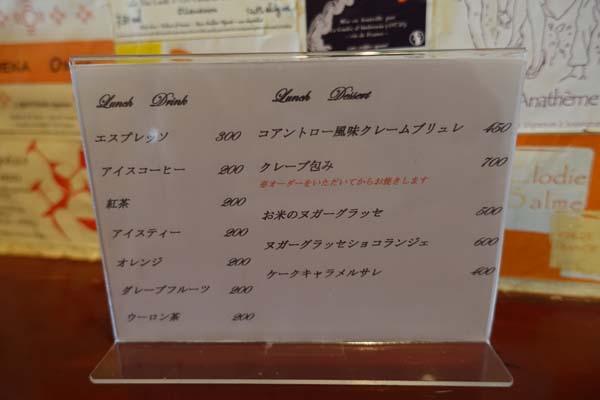 Anathème
Lunch Drink
エスプレッソ 300
アイスコーヒー 200
紅茶 200
アイスティー 200
オレンジ 200
グレープフルーツ 200
ウーロン茶 200
Lunch Dessert
コアントロー風味クレームブリュレ 450
クレープ包み 700
※オーダーをいただいてからお焼きします
お米のヌガーグラッセ 500
ヌガーグラッセショコランジェ 600
ケークキャラメルサレ 400